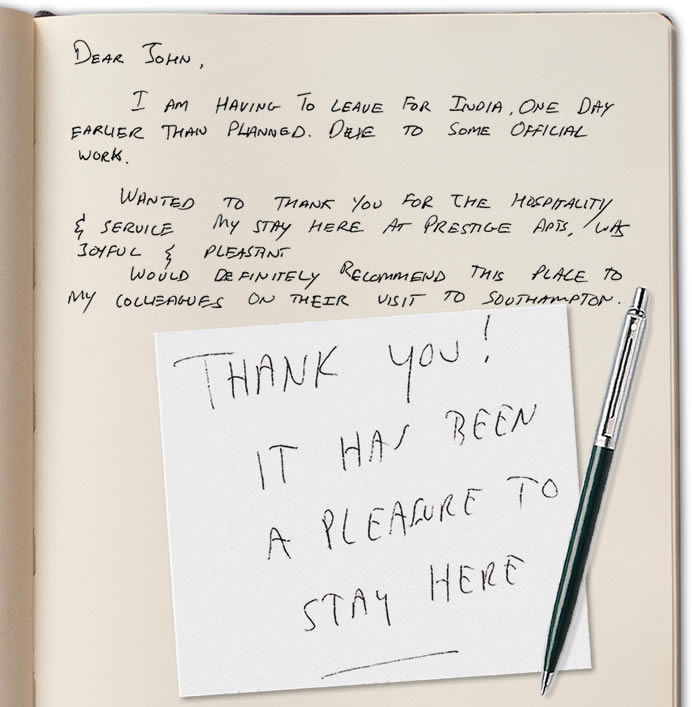 DEAR JOHN,
I AM HAVING TO LEAVE FOR INDIA, ONE DAY
EARLIER THAN PLANNED. DUE TO SOME OFFICIAL
WORK.
WANTED TO THANK YOU FOR THE HOSPITALITY
& SERVICE MY STAY HERE AT PRESTIGE APTS, WAS
JOYFUL & PLEASANT
WOULD DEFINITELY RECOMMEND THIS PLACE TO
MY COLLEAGUES ON THEIR VISIT TO SOUTHAMPTON.
THANK YOU!
IT HAS BEEN
A PLEASURE TO
STAY HERE